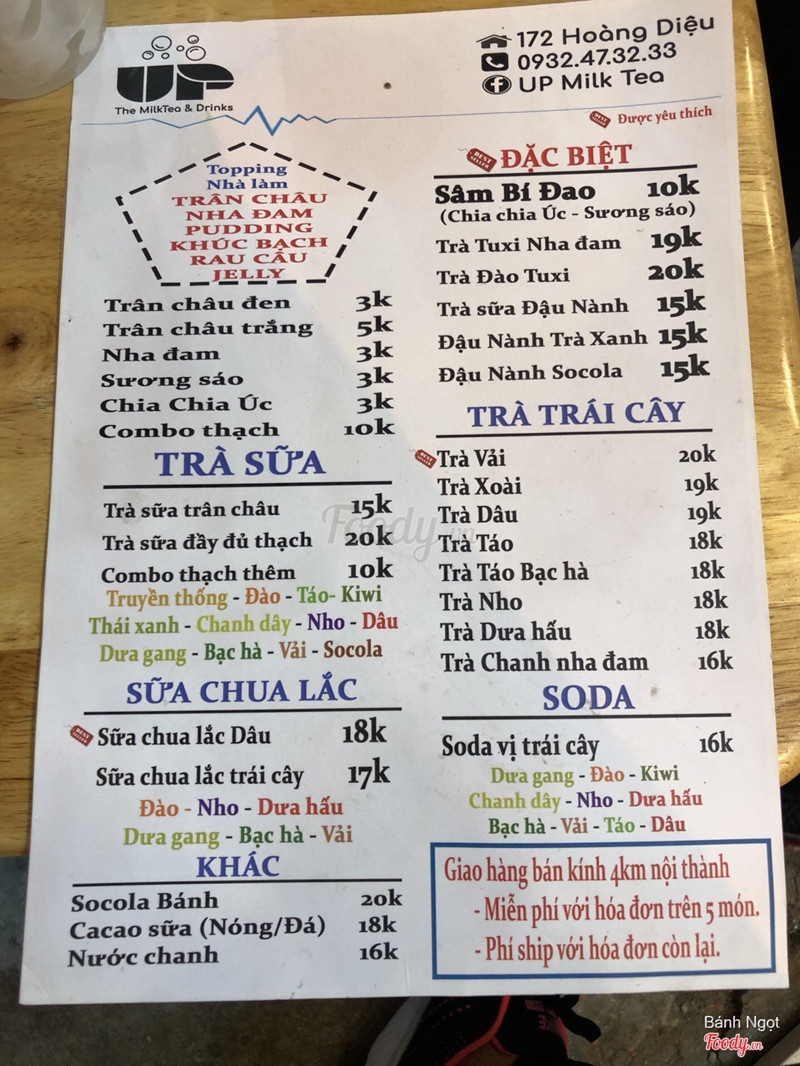 UP
The MilkTea & Drinks
172 Hoàng Diệu
0932.47.32.33
UP Milk Tea
BEST SELLER Được yêu thích
Topping
Nhà làm
TRÂN CHÂU
NHA ĐAM
PUDDING
KHÚC BẠCH
RAU CÂU
JELLY
Trân châu đen 3k
Trân châu trắng 5k
Nha đam 3k
Sương sáo 3k
Chia Chia Úc 3k
Combo thạch 10k
TRÀ SỮA
Trà sữa trân châu 15k
Trà sữa đầy đủ thạch 20k
Combo thạch thêm 10k
Truyền thống - Đào - Táo- Kiwi
Thái xanh - Chanh dây - Nho - Dâu
Dưa gang - Bạc hà - Vải - Socola
SỮA CHUA LẮC
BEST SELLER Sữa chua lắc Dâu 18k
Sữa chua lắc trái cây 17k
Đào - Nho - Dưa hấu
Dưa gang - Bạc hà - Vải
KHÁC
Socola Bánh 20k
Cacao sữa (Nóng/Đá) 18k
Nước chanh 16k
BEST SELLER ĐẶC BIỆT
Sâm Bí Đao 10k
(Chia chia Úc - Sương sáo)
Trà Tuxi Nha đam 19k
Trà Đào Tuxi 20k
Trà sữa Đậu Nành 15k
Đậu Nành Trà Xanh 15k
Đậu Nành Socola 15k
TRÀ TRÁI CÂY
BEST SELLER Trà Vải 20k
Trà Xoài 19k
Trà Dâu 19k
Trà Táo 18k
Trà Táo Bạc hà 18k
Trà Nho 18k
Trà Dưa hấu 18k
Trà Chanh nha đam 16k
SODA
Soda vị trái cây 16k
Dưa gang - Đào - Kiwi
Chanh dây - Nho - Dưa hấu
Bạc hà - Vải - Táo - Dâu
Giao hàng bán kính 4km nội thành
- Miễn phí với hóa đơn trên 5 món.
- Phí ship với hóa đơn còn lại.
Foody.vn
Bánh Ngọt
Foody.vn